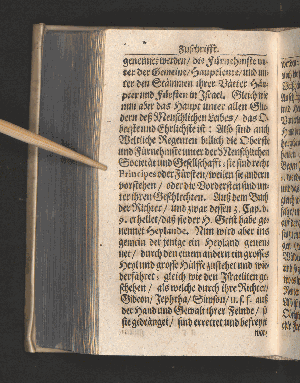 Zuschrifft.
genennet werden / die Fürnehmste un-
ter der Gemeine / Hauptleute / und un-
ter den Stämmen ihrer Väter Häu-
pter und Fürsten in Israel. Gleich wie
nun aber das Haupt unter allen Glie-
dern deß Menschlichen Leibes / das O-
berste und Ehrlichste ist: Also sind auch
Weltliche Regenten billich die Oberste
und Fürnehmste unter der Menschlichen
Societät und Gesellschafft: sie sind recht
Principes oder Fürsten / weilen sie andern
vorstehen / oder die Vordersten sind un-
ter ihren Geschlechten. Auß dem Buch
der Richter / und zwar dessen 3. Cap. v.
9. erhellet / daß sie der H. Geist habe ge-
nennet Heylande. Nun wird aber ins
gemein der jenige ein Heyland genen-
net / durch den einem andern ein grosses
Heyl und grosse Hülffe zustehet und wi-
derfähret; gleich wie den Israeliten ge-
schehen / als welche durch ihre Richter /
Gideon / Jephtha / Simson / u. s. f. auß
der Hand und Gewalt ihrer Feinde / die
sie gedränget / sind errettet und befreyet